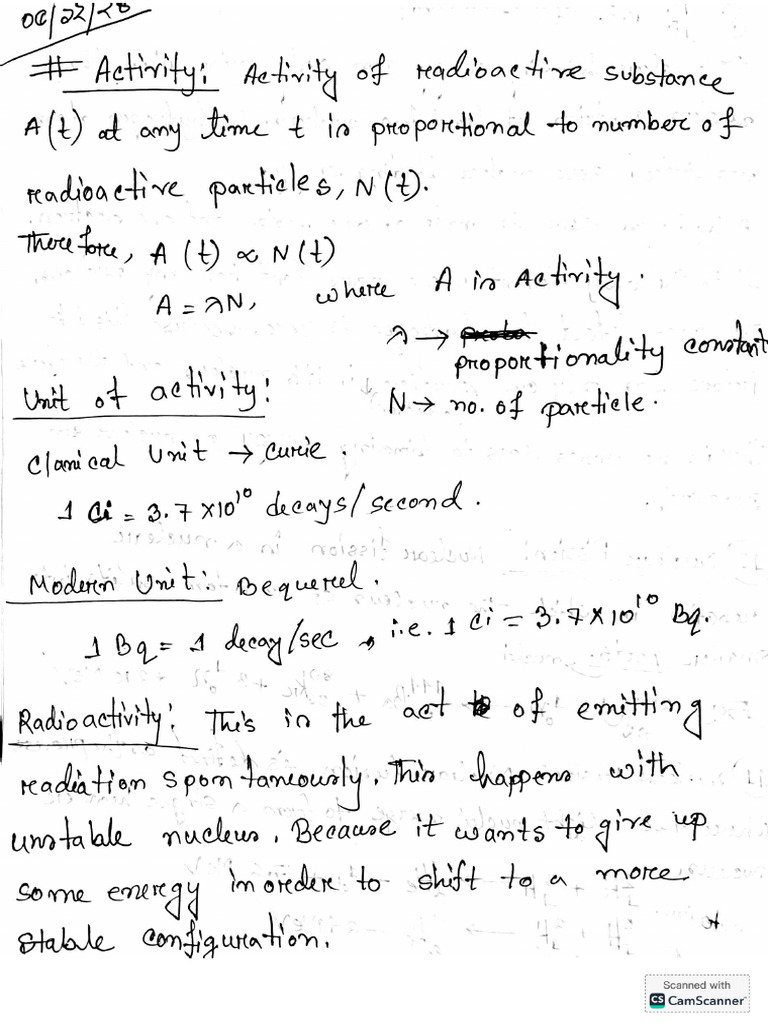 08/22/23
# Activity: Activity of radioactive substance
A(t) at any time t is proportional to number of
radioactive particles, N(t).
Therefore, A(t) ∝ N(t)
A = λN, where A is Activity.
λ → proportionality constant
N → no. of particle.
Unit of activity:
Classical Unit → Curie.
1 Ci = 3.7 × 10¹⁰ decays/second.
Modern Unit: Bequerel.
1 Bq = 1 decay/sec, i.e. 1 Ci = 3.7 × 10¹⁰ Bq.
Radioactivity: This is the act of emitting
readiation spontaneously. This happens with
unstable nucleus. Because it wants to give up
some energy in order to shift to a more
stable configuration.
Scanned with
CS CamScanner